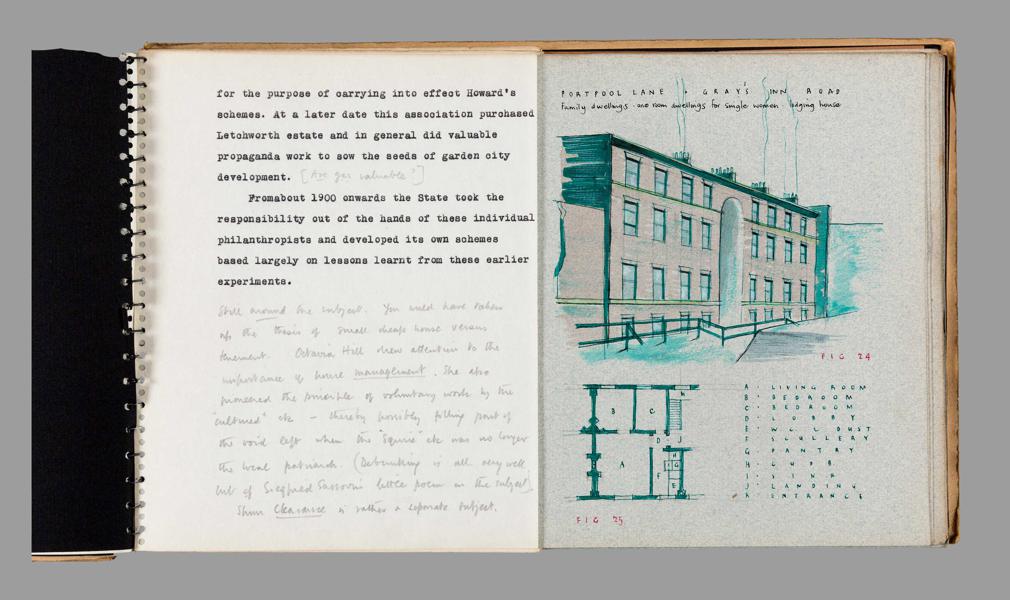 for the purpose of carrying into effect Howard's
schemes. At a later date this association purchased
Letchworth estate and in general did valuable
propaganda work to sow the seeds of garden city
development. [Are gas valuable?]
Fromabout 1900 onwards the State took the
responsibility out of the hands of these individual
philanthropists and developed its own schemes
based largely on lessons learnt from these earlier
experiments.
Still around the subject. You could have taken
up the thesis of small cheap house versus
tenement. Octavia Hill drew attention to the
importance of house management. She also
pioneered the principle of voluntary work by the
"cultured" etc - thereby possibly filling part of
the void left when the "Squire" etc was no longer
the local patriarch. (Debunking is all very well
but of Siegfried Sassoon's little poem on the subject).
Slum Clearance is rather a separate subject.
PORTPOOL LANE · GRAY'S INN ROAD
Family dwellings · one room dwellings for single women · lodging house
FIG 24
B
C
H
D
J
A
F
H
I
G
E
A · LIVING ROOM
B · BEDROOM
C · BEDROOM
D · LOBBY
E · W C & DUST
F · SCULLERY
G · PANTRY
H · CUPB
I · SINK
J · LANDING
K · ENTRANCE
FIG 25